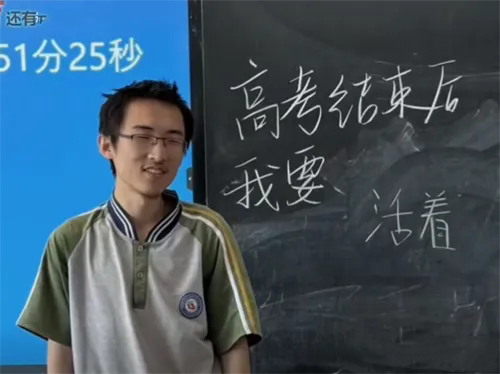 还有
51分25秒
高考结束后
我要
活着